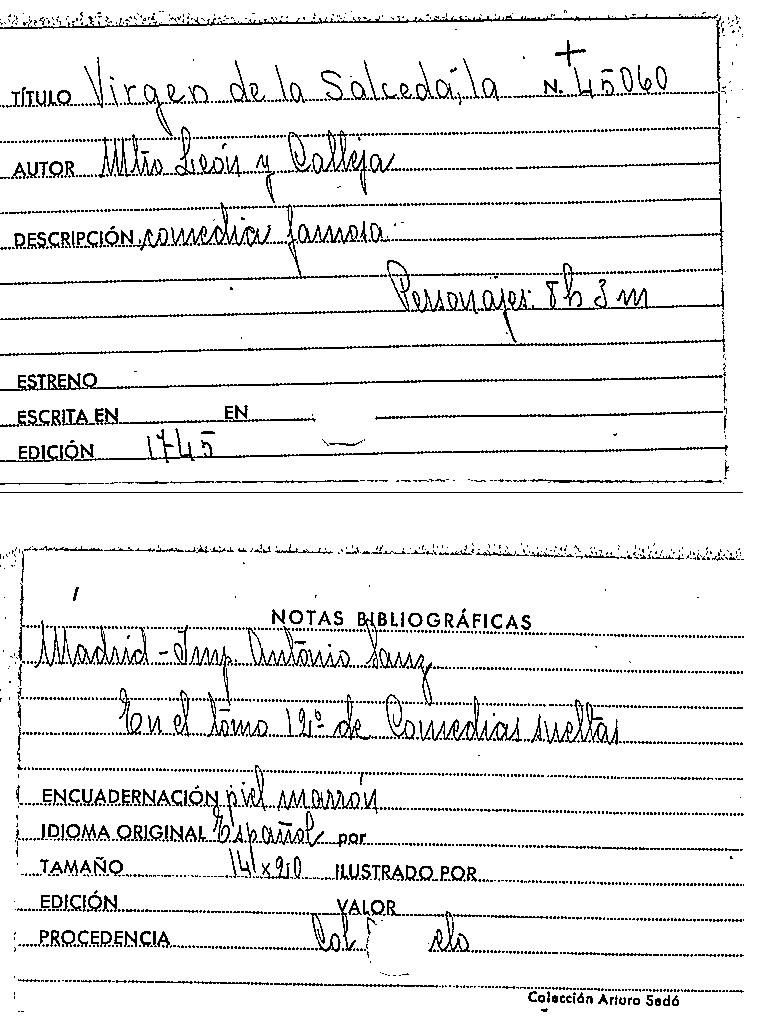 TÍTULO Virgen de la Salceda, la N. 45060
AUTOR Mtro León y Calleja
DESCRIPCIÓN comedia famosa
Personajes: 8h 3m
ESTRENO
ESCRITA EN EN
EDICIÓN 1745
NOTAS BIBLIOGRÁFICAS
Madrid - Imp. Antonio Sanz
En el tomo 12º de Comedias sueltas
ENCUADERNACIÓN piel marrón
IDIOMA ORIGINAL Español por
TAMAÑO 14 x 20 ILUSTRADO POR
EDICIÓN VALOR
PROCEDENCIA Col
Colección Arturo Sedó